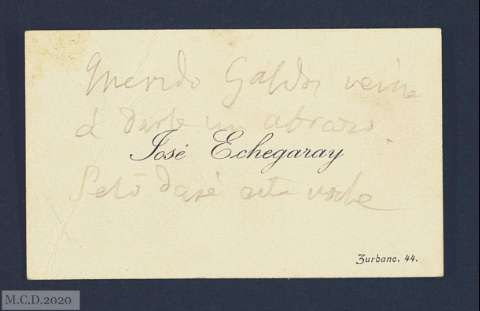 Querido Galdós venía
á darte un abrazo.
José Echegaray
Te lo daré esta noche
Zurbano. 44.
M.C.D.2020